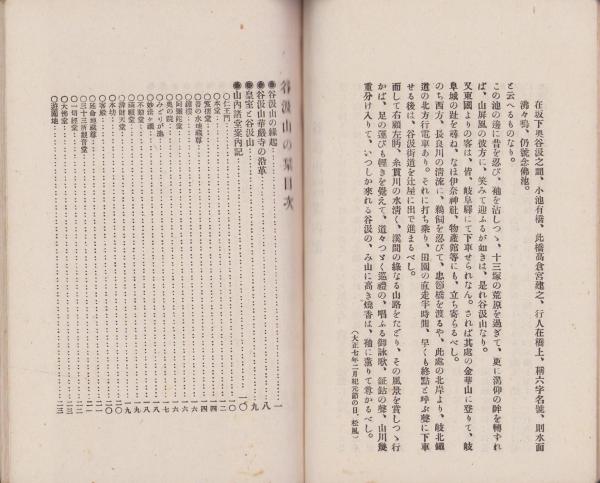 在坂下奥谷汲之頭、小池有橋、此橋高倉宮建之、行人在橋上、稱六字名號、則水面
湧々鳴、仍號念佛池。
と云へるものなり。
この池の邊に昔を忍び、袖を沾しつゝ、十三塚の荒原を過ぎて、更に渇仰の眸を轉ずれ
ば、山屏風の彼方に、笑みて迎ふるが如きは、是れ谷汲山なり。
又東國よりの客は、皆、岐阜驛にて下車せられなん。されば其處の金華山に登りて、岐
阜城の趾を尋ね、なほ伊奈神社、物產館等にも、立ち寄らるべし。
のち西方、長良川の清流に、鵜飼を忍びて、忠節橋を渡るや、此處の北岸より、岐北鐵
道の北方行電車あり。それに打ち乘り、田園の直走半時間、早くも終點と呼ぶ聲に下車
せる後は、谷汲街道を辻屋に出で進まるべし。
而して右顧左眄、糸貫川の水清く、溪間の綠なる山路をたどり、その風景を賞しつゝ行
かば、足の運びも輕きを覺えて、道々つゞく巡禮の、唱ふる御詠歌、鉦鈷の聲、山川幾
重分け入りて、いつしか來れる谷汲の、み山に高き燒香は、袖に薰りて尊かるべし。
(大正七年二月紀元節の日、松風)
谷汲山の栞目次
●谷汲山の緣起……一
●谷汲山華嚴寺の沿革……八
●皇室と谷汲山……九
●山內諸堂案內記……一〇
〇仁王門……一〇
〇本堂……一二
〇笈摺堂……一四
〇苔の水地藏尊……一四
〇鐘樓……一六
〇阿彌陀堂……一六
〇奥の院……一七
〇みどりが池
〇妙法ヶ瀧……一八
〇不動堂……一八
〇滿願堂……一九
〇辨財天堂……一九
〇本坊……二〇
〇客殿……二〇
〇延命地藏尊……二一
〇三十三所觀音堂……二一
〇一切經堂……二二
〇大佛堂……二三
〇遊園地……二三